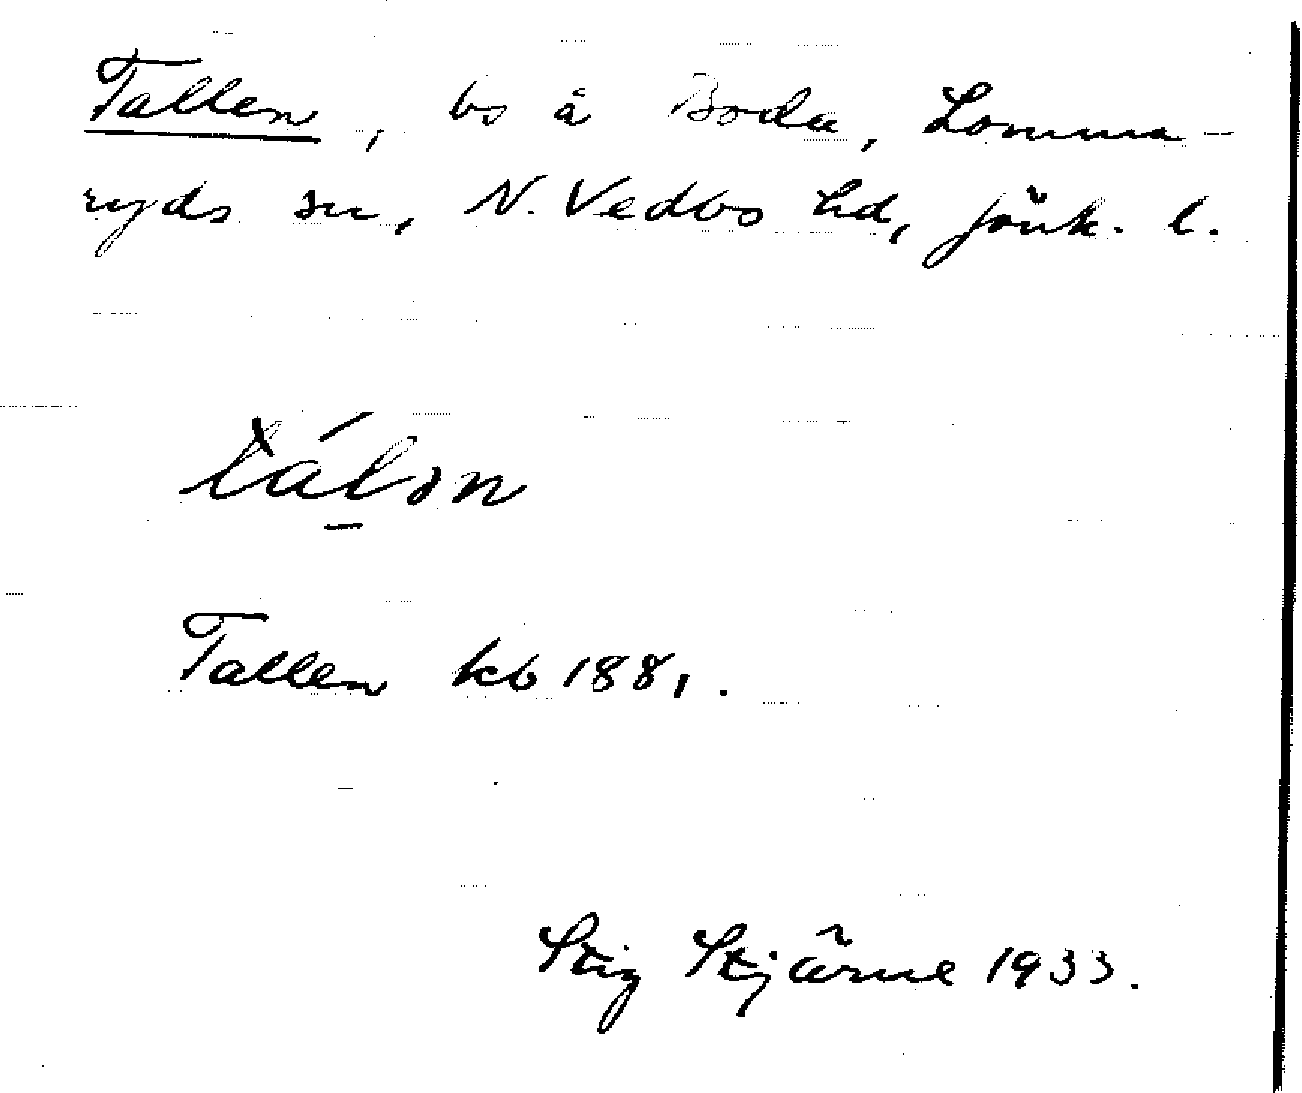 Tallen, bs å Boda, Lomma-
ryds sn, N. Vedbo hd, Jönk. l.
tálən
Tallen kb 1881.
Stig Stjärne 1933.